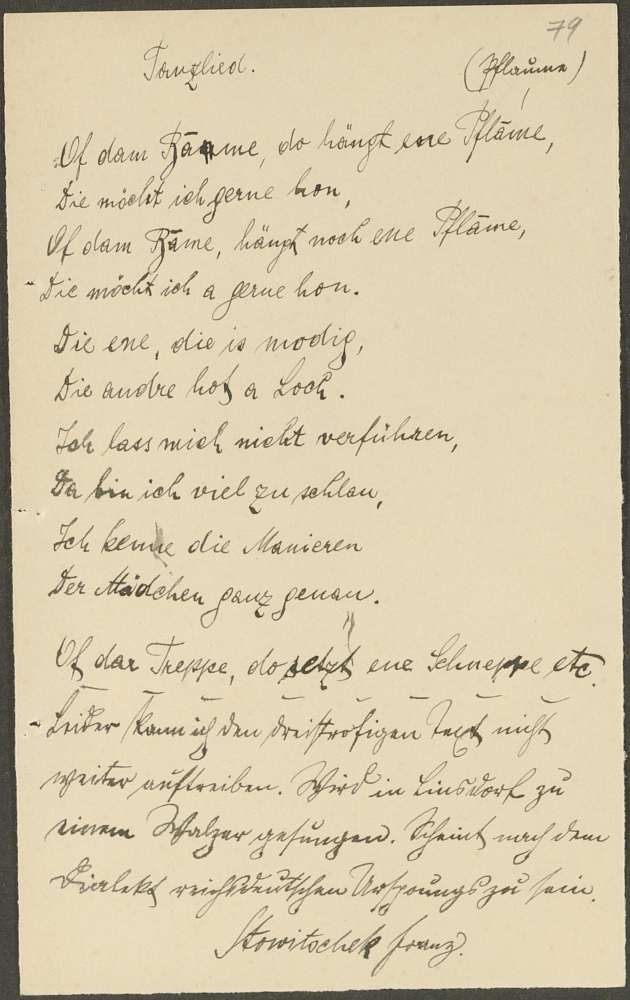 79
Tanzlied. (Pflaume)
Of dam Bāme, do hängt ene Pflāme,
Die möcht ich gerne hon,
Of dam Bāme, hängt noch ene Pflāme,
Die möcht ich a gerne hon.
Die ene, die is modig,
Die andre hot a Loch.
Ich lass mich nicht verführen,
Da bin ich viel zu schlau,
Ich kenne die Manieren
Der Mädchen ganz genau.
Of dar Treppe, do setzt ene Schneppe etc.
Leider kann ich den dreistrofigen Text nicht
weiter auftreiben. Wird in Linsdorf zu
einem Walzer gesungen. Scheint nach dem
Dialekt reichsdeutschen Ursprungs zu sein.
Stowitschek Franz.